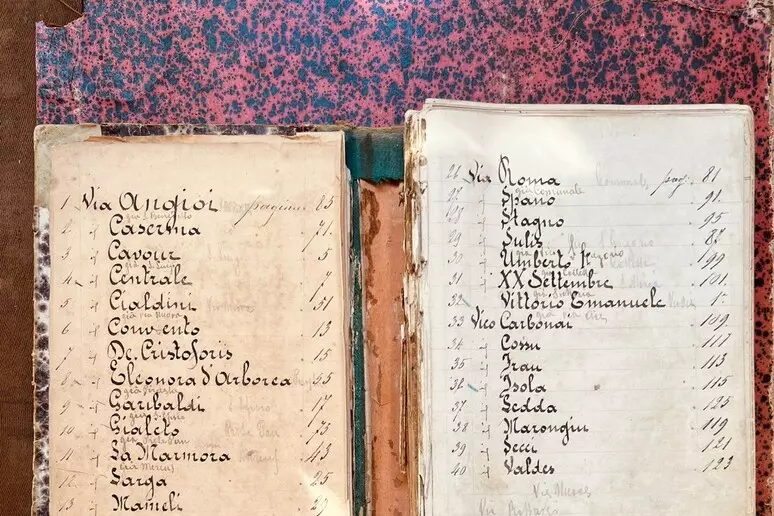 1 Via Angioi pagina 85
già S. Benedetto
2 " Caserma 71
3 " Cavour 5
4 " Centrale 7
5 " Cialdini 51
già via Nuova
6 " Convento 13
7 " De Cristoforis 15
8 " Eleonora d'Arborea 55
9 " Garibaldi 17
10 " Gialeto 73
11 " La Marmora 43
12 " Larga 25
13 " Mameli
26 Via Roma Comunale pag. 81
già Comunale
27 " Spano 91
28 " Stagno 95
29 " Sulis 87
30 " Umberto 99
31 " XX Settembre 101
32 " Vittorio Emanuele 1
33 Vico Carbonai 109
34 " Cossu 117
35 " Frau 113
36 " Isola 115
37 " Sedda 125
38 " Marongiu 119
39 " Secci 121
40 " Valdes 123
Via Nuova
Via